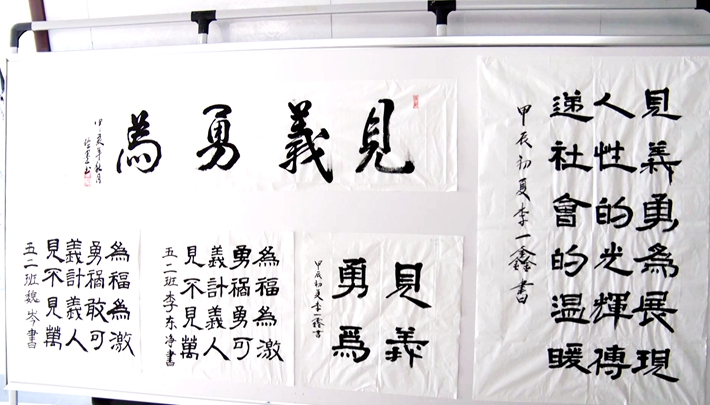 見義勇為
見義勇為展現
人性的光輝傳
遞社會的温暖
甲辰初夏李一鑫書
見義
勇爲
甲辰初夏李一鑫書
見義勇為
不計禍福
見義勇為
萬人可激
五二班李东净書
見義勇為
不計禍福
見義敢為
萬人可激
五二班魏岑書